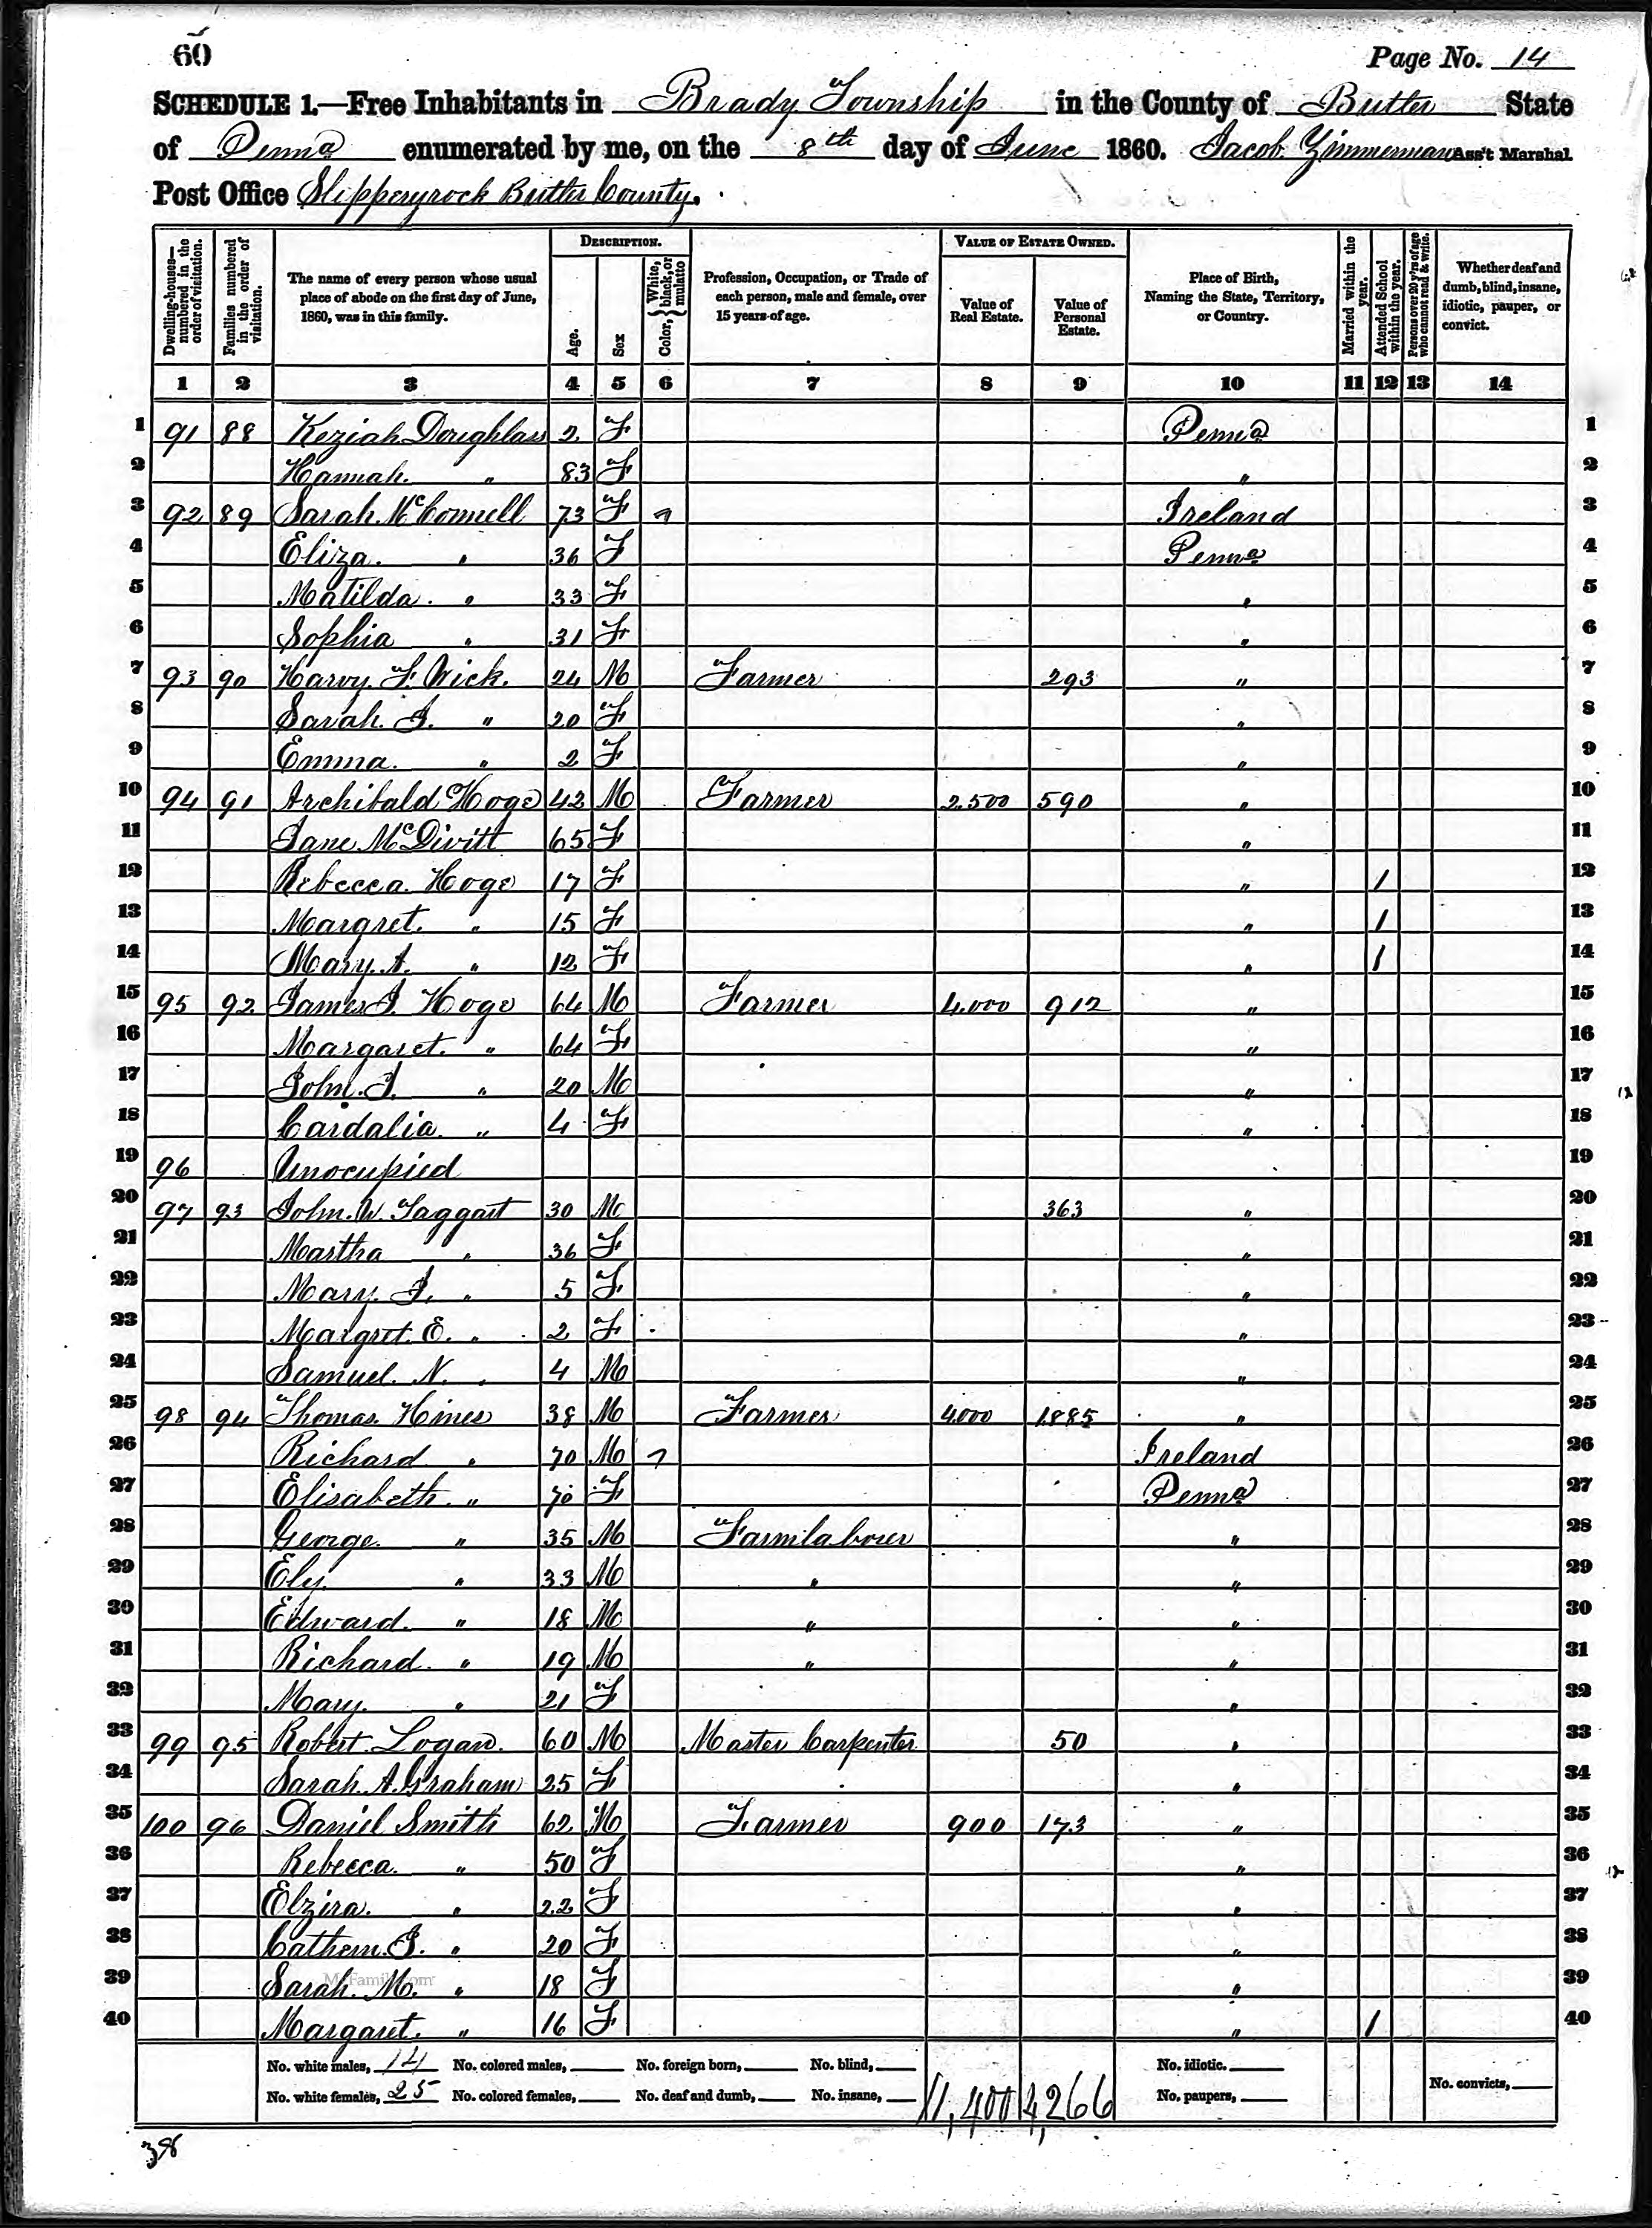 60
Page No. 14
SCHEDULE 1.—Free Inhabitants in Brady Township in the County of Butler State
of Penna enumerated by me, on the 8th day of June 1860. Jacob Zimmerman Ass't Marshal
Post Office Slipperyrock Butler County.
Dwelling-houses—numbered in the order of visitation.
Families numbered in the order of visitation.
The name of every person whose usual place of abode on the first day of June, 1860, was in this family.
DESCRIPTION.
Age.
Sex
Color, { White, black, or mulatto
Profession, Occupation, or Trade of each person, male and female, over 15 years of age.
VALUE OF ESTATE OWNED.
Value of Real Estate.
Value of Personal Estate.
Place of Birth, Naming the State, Territory, or Country.
Married within the year.
Attended School within the year.
Persons over 20 y'rs of age who cannot read & write.
Whether deaf and dumb, blind, insane, idiotic, pauper, or convict.
1 2 3 4 5 6 7 8 9 10 11 12 13 14
1 91 88 Keziah Doughlass 2 F Penna 1
2 Hannah " 83 F " 2
3 92 89 Sarah McConnell 73 F Ireland 3
4 Eliza " 36 F Penna 4
5 Matilda " 33 F " 5
6 Sophia " 31 F " 6
7 93 90 Harvy F. Wick. 24 M Farmer 293 " 7
8 Sarah J. " 20 F " 8
9 Emma " 2 F " 9
10 94 91 Archibald Hoge 42 M Farmer 2.500 590 " 10
11 Jane McDivitt 65 F " 11
12 Rebecca Hoge 17 F " 1 12
13 Margret " 15 F " 1 13
14 Mary A. " 12 F " 1 14
15 95 92 James J. Hoge 64 M Farmer 4.000 912 " 15
16 Margaret " 64 F " 16
17 John J. " 20 M " 17
18 Cardalia " 4 F " 18
19 96 Unocupied 19
20 97 93 John W. Taggart 30 M 363 " 20
21 Martha " 36 F " 21
22 Mary J. " 5 F " 22
23 Margret E. " 2 F " 23
24 Samuel N. " 4 M " 24
25 98 94 Thomas Hines 38 M Farmer 4000 1.885 " 25
26 Richard " 70 M Ireland 26
27 Elisabeth " 70 F Penna 27
28 George " 35 M Farmlabourer " 28
29 Ely " 33 M " " 29
30 Edward " 18 M " " 30
31 Richard " 19 M " " 31
32 Mary " 21 F " 32
33 99 95 Robert Logan 60 M Master Carpenter 50 " 33
34 Sarah A. Graham 25 F " 34
35 100 96 Daniel Smith 62 M Farmer 900 173 " 35
36 Rebecca " 50 F " 36
37 Elzira " 22 F " 37
38 Cathern J. " 20 F " 38
39 Sarah M. " 18 F " 39
40 Margaret " 16 F " 1 40
No. white males, 14 No. colored males, No. foreign born, No. blind, No. idiotic.
No. white females, 25 No. colored females, No. deaf and dumb, No. insane, 11,400 4,266 No. paupers, No. convicts,
38